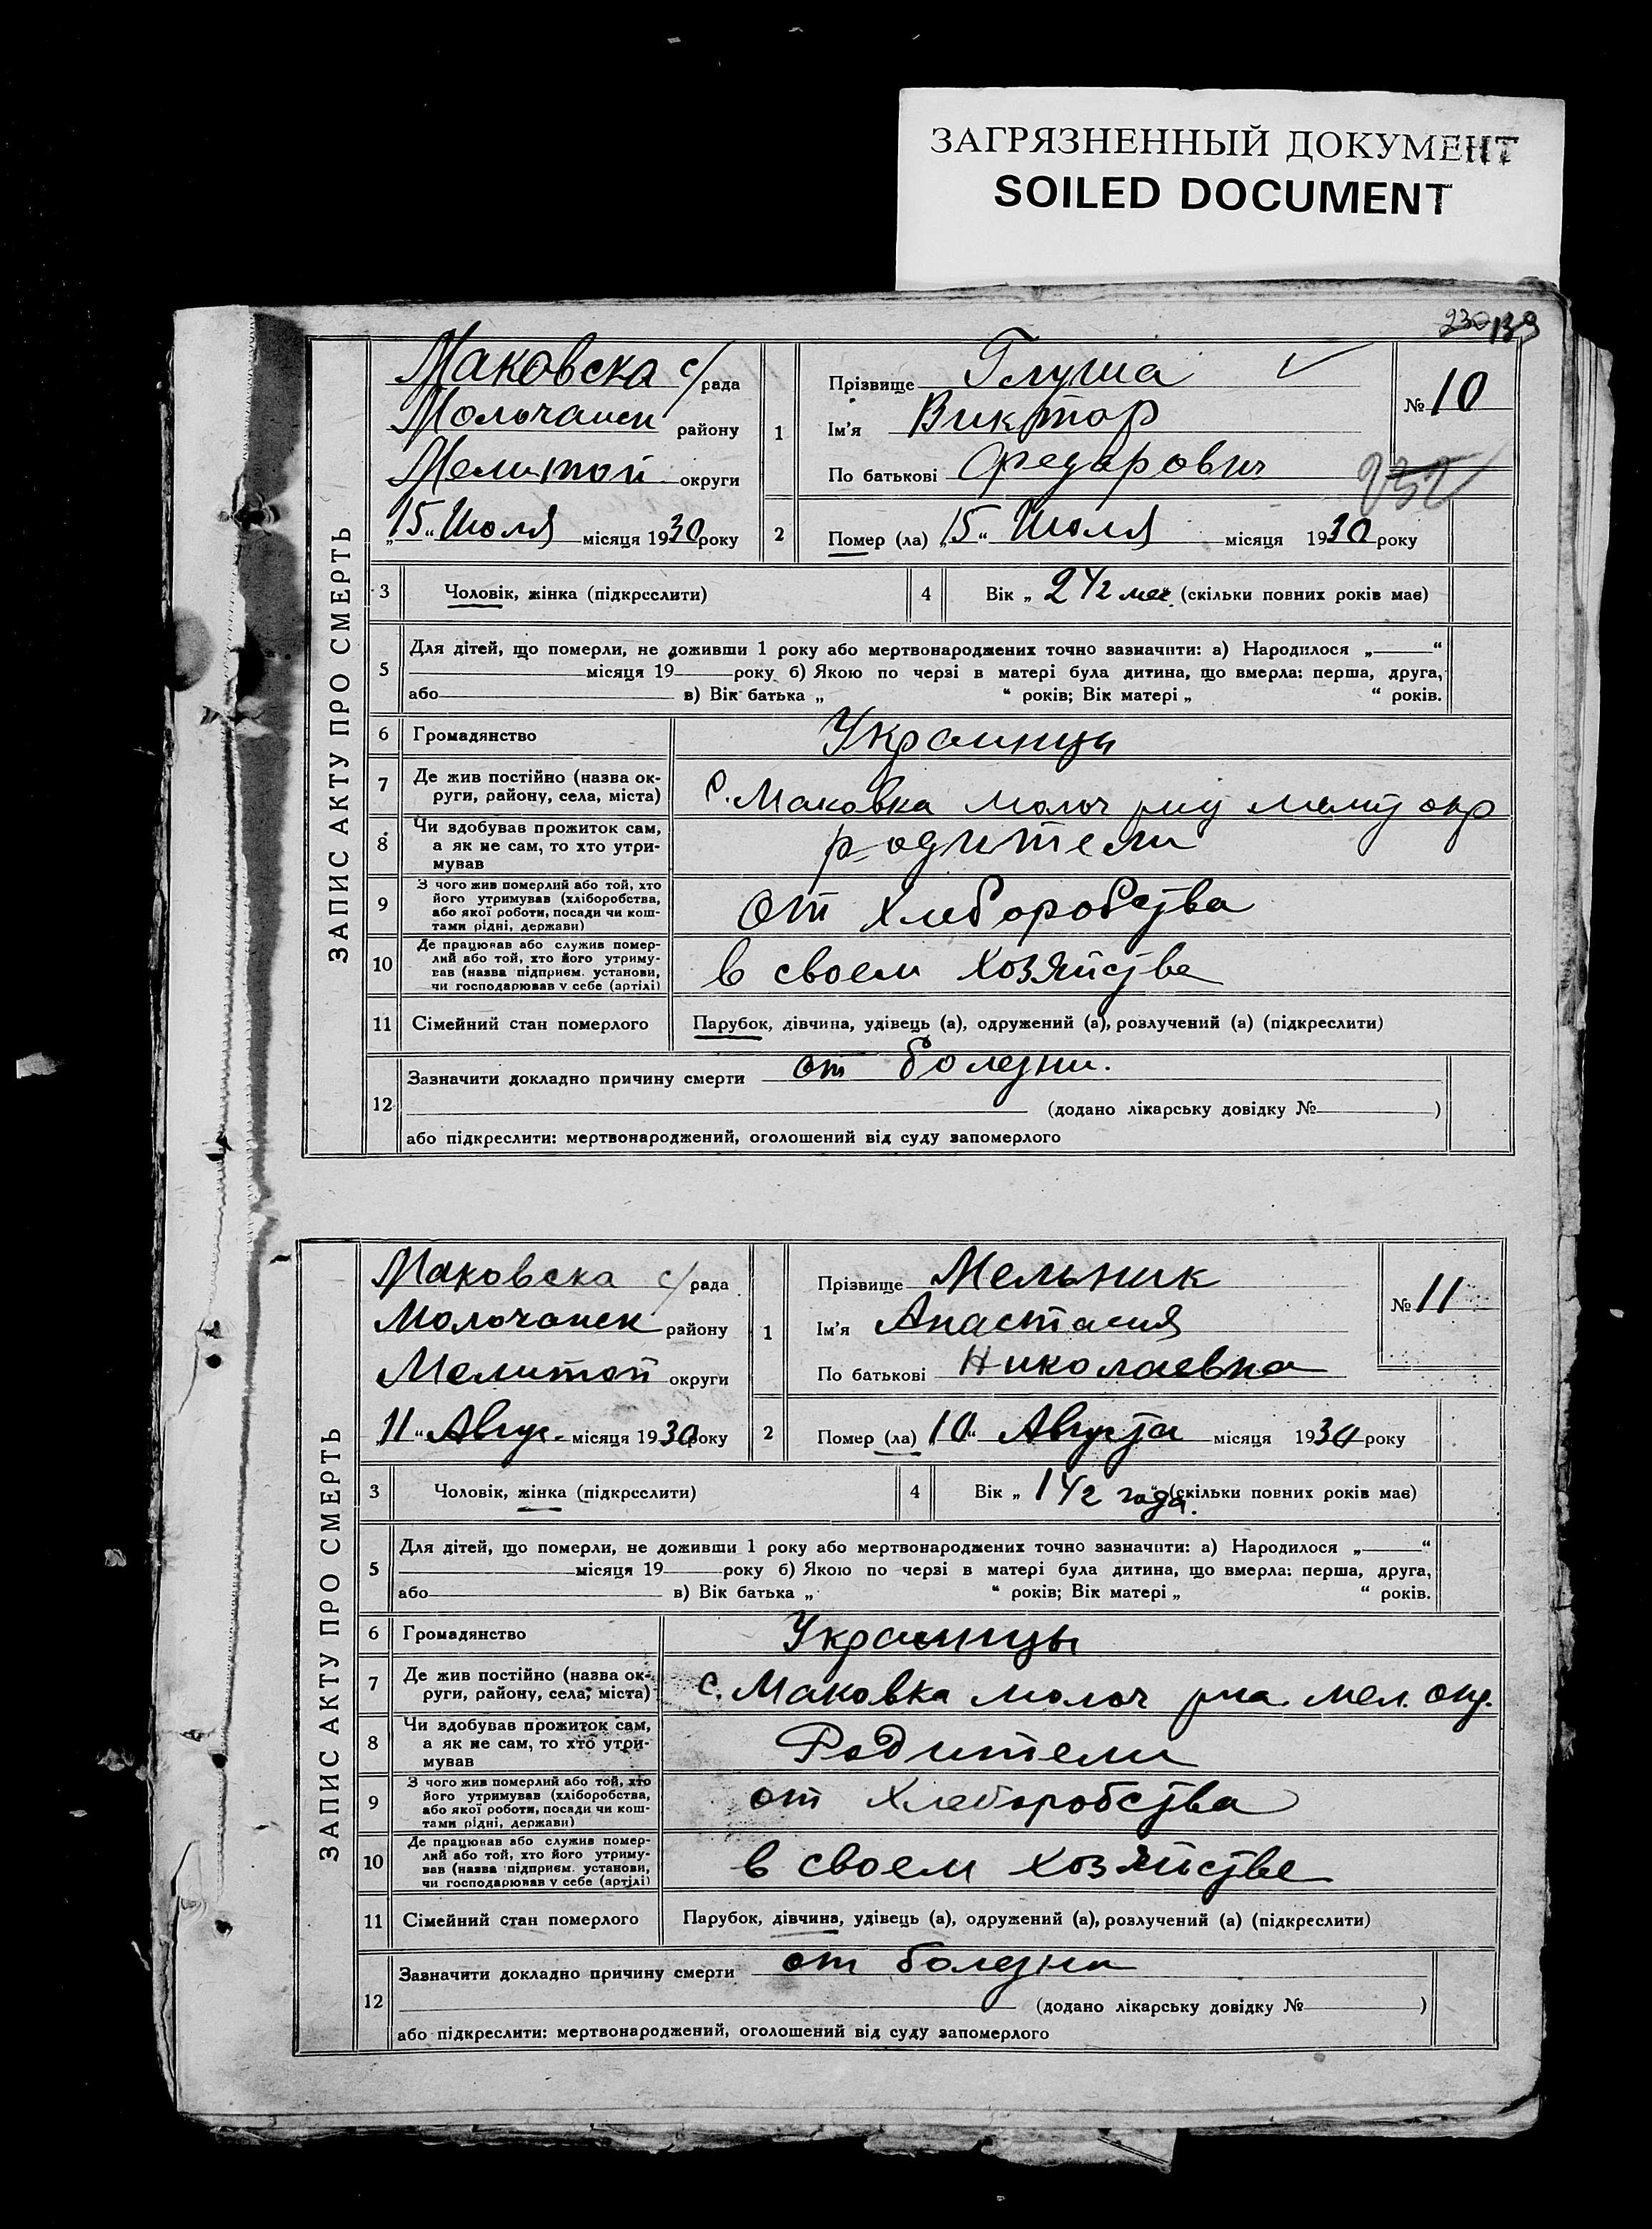 ЗАГРЯЗНЕННЫЙ ДОКУМЕНТ
SOILED DOCUMENT
230 139
ЗАПИС АКТУ ПРО СМЕРТЬ
Маковска с/рада
Молочанск району
Мелитоп округи
„15“ Июля місяця 1930 року
1
Прізвище Глуша
Ім'я Виктор
По батькові Федорович
№ 10
232
2
Помер (ла) „15“ Июля місяця 1930 року
3 Чоловік, жінка (підкреслити)
4 Вік „ 2 1/2 мес. (скільки повних років має)
5 Для дітей, що померли, не доживши 1 року або мертвонароджених точно зазначити: а) Народилося „ “
місяця 19 року б) Якою по черзі в матері була дитина, що вмерла: перша, друга,
або в) Вік батька „ “ років; Вік матері „ “ років.
6 Громадянство Украинцы
7 Де жив постійно (назва ок-
руги, району, села, міста) с. Маковка молоч рну мелит окр
8 Чи здобував прожиток сам,
а як не сам, то хто утри-
мував родители
9 З чого жив померлий або той, хто
його утримував (хліборобства,
або якої роботи, посади чи кош-
тами рідні, держави) от хлеборобства
10 Де працював або служив помер-
лий або той, хто його утриму-
вав (назва підприєм. установи,
чи господарював у себе (артілі) в своем хозяйстве
11 Сімейний стан померлого Парубок, дівчина, удівець (а), одружений (а), розлучений (а) (підкреслити)
12 Зазначити докладно причину смерти от болезни.
(додано лікарську довідку № )
або підкреслити: мертвонароджений, оголошений від суду запомерлого
ЗАПИС АКТУ ПРО СМЕРТЬ
Маковска с/рада
Молочанск району
Мелитоп округи
„11“ Авгус. місяця 1930 року
1
Прізвище Мельник
Ім'я Анастасия
По батькові Николаевна
№ 11
2
Помер (ла) „10“ Августа місяця 1930 року
3 Чоловік, жінка (підкреслити)
4 Вік „ 1 1/2 года. “ (скільки повних років має)
5 Для дітей, що померли, не доживши 1 року або мертвонароджених точно зазначити: а) Народилося „ “
місяця 19 року б) Якою по черзі в матері була дитина, що вмерла: перша, друга,
або в) Вік батька „ “ років; Вік матері „ “ років.
6 Громадянство Украинцы
7 Де жив постійно (назва ок-
руги, району, села, міста) с. Маковка молоч рна. мел. окр.
8 Чи здобував прожиток сам,
а як не сам, то хто утри-
мував Родители
9 З чого жив померлий або той, хто
його утримував (хліборобства,
або якої роботи, посади чи кош-
тами рідні, держави) от хлеборобства
10 Де працював або служив помер-
лий або той, хто його утриму-
вав (назва підприєм. установи,
чи господарював у себе (артілі) в своем хозяйстве
11 Сімейний стан померлого Парубок, дівчина, удівець (а), одружений (а), розлучений (а) (підкреслити)
12 Зазначити докладно причину смерти от болезни
(додано лікарську довідку № )
або підкреслити: мертвонароджений, оголошений від суду запомерлого